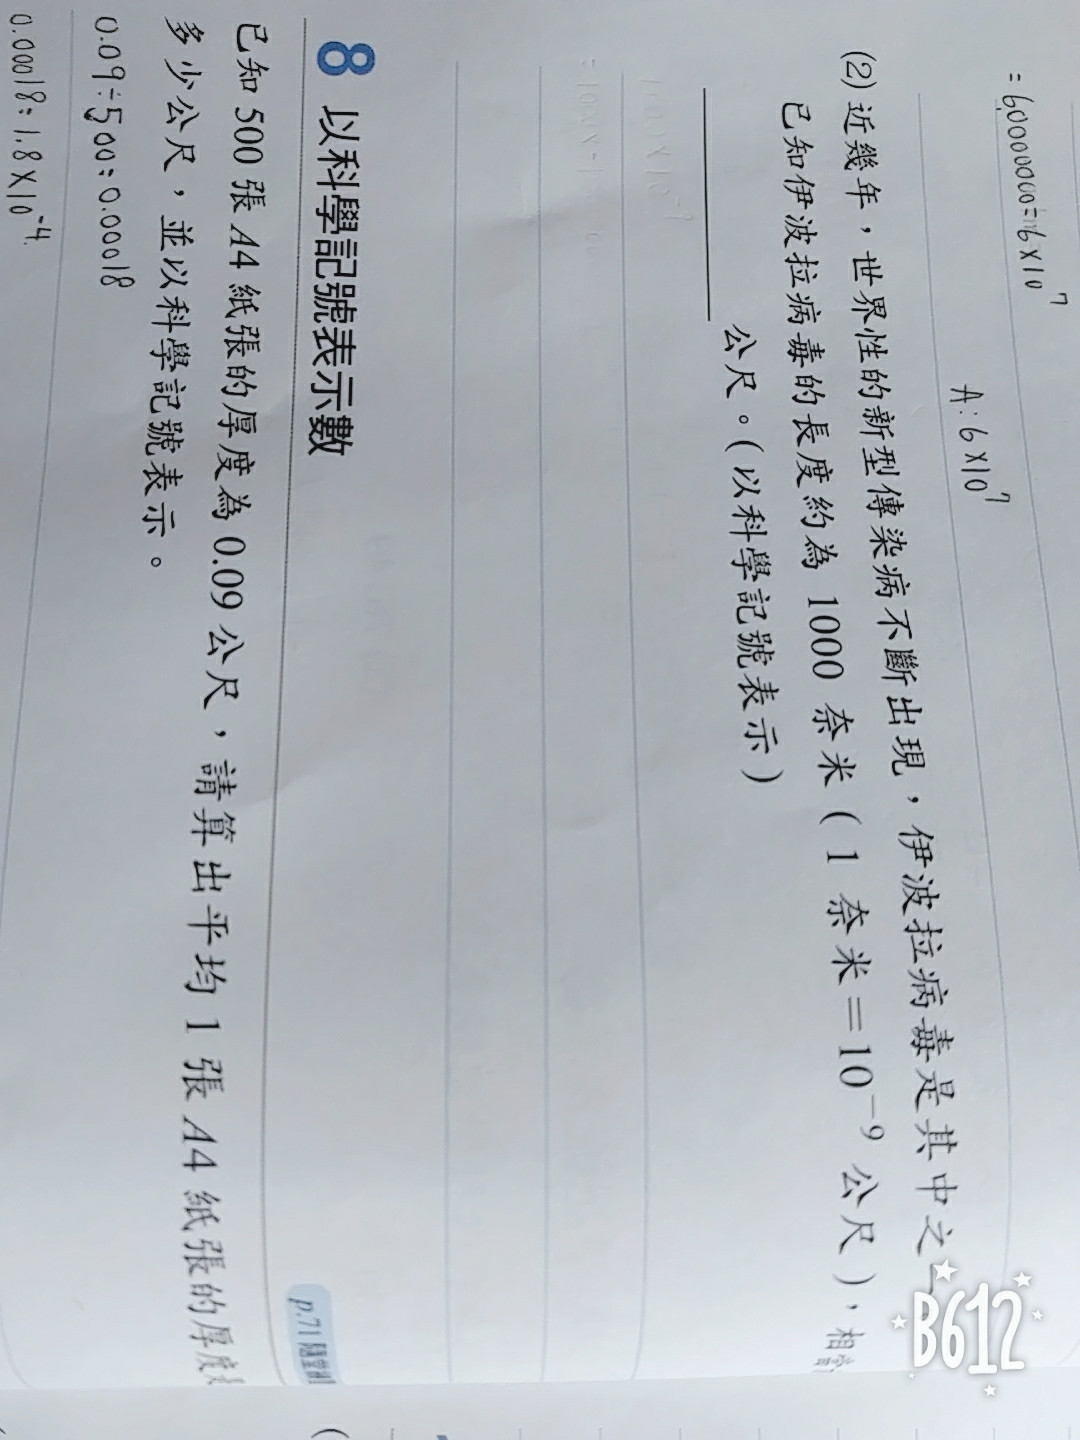 = 60000000 = 6×10⁷
A: 6×10⁷
(2) 近幾年，世界性的新型傳染病不斷出現，伊波拉病毒是其中之一
已知伊波拉病毒的長度約為 1000 奈米（1 奈米＝10⁻⁹ 公尺），相當
公尺。（以科學記號表示）
8 以科學記號表示數
p.71 隨堂練
已知 500 張 A4 紙張的厚度為 0.09 公尺，請算出平均 1 張 A4 紙張的厚度
多少公尺，並以科學記號表示。
0.09÷500=0.00018
0.00018=1.8×10⁻⁴
B612